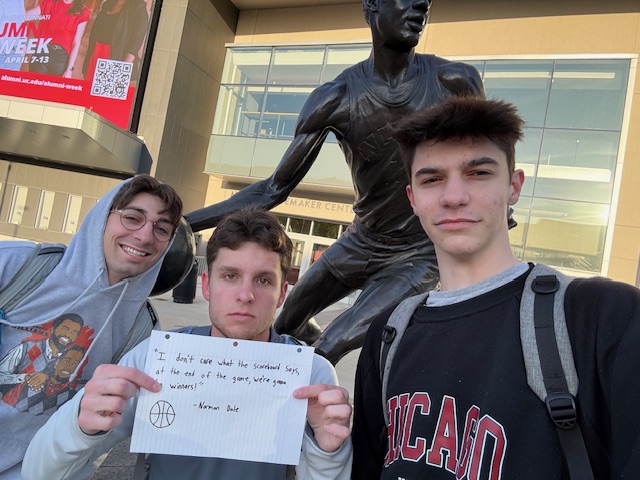 CINCINNATI
WEEK
APRIL 7-13
alumni.uc.edu/alumni-week
EMAKER CENT
"I don't care what the scoreboard says,
at the end of the game, we're gonna
be winners!"
-Norman Dale
CHICAGO